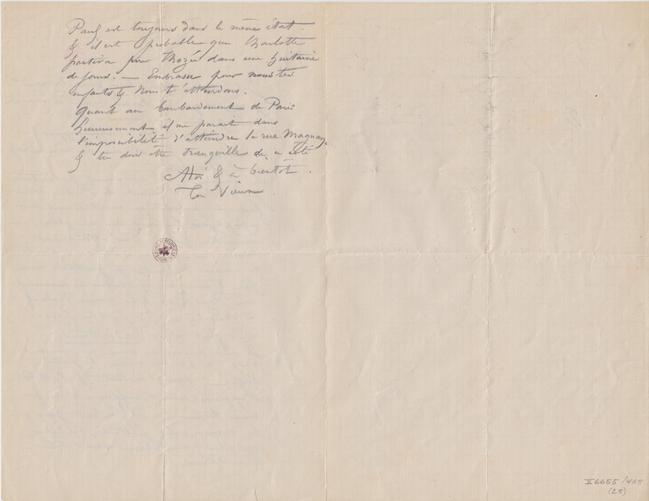 Paul est toujours dans le même état
& il est probable que Charlotte
partira pour dans une huitaine
de jours. — Embrasse pour nous tes
enfants & nous t'attendons.
Quant au bombardement de Paris
heureusement il me parait dans
l'impossibilité d'atteindre la rue Magnan
& tu dois être tranquille de ce côté
à bientôt.
Ton